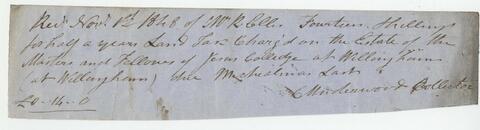 Recd Novr 1st 1848 of Mr R Ellis Fourteen Shillings
for half a years Land Tax Charg'd on the Estate of the
Masters and Fellows of Jesus Colledge at Willingham
(at Willingham) due Michaelmas Last
£0-14-0 Underwood Collector